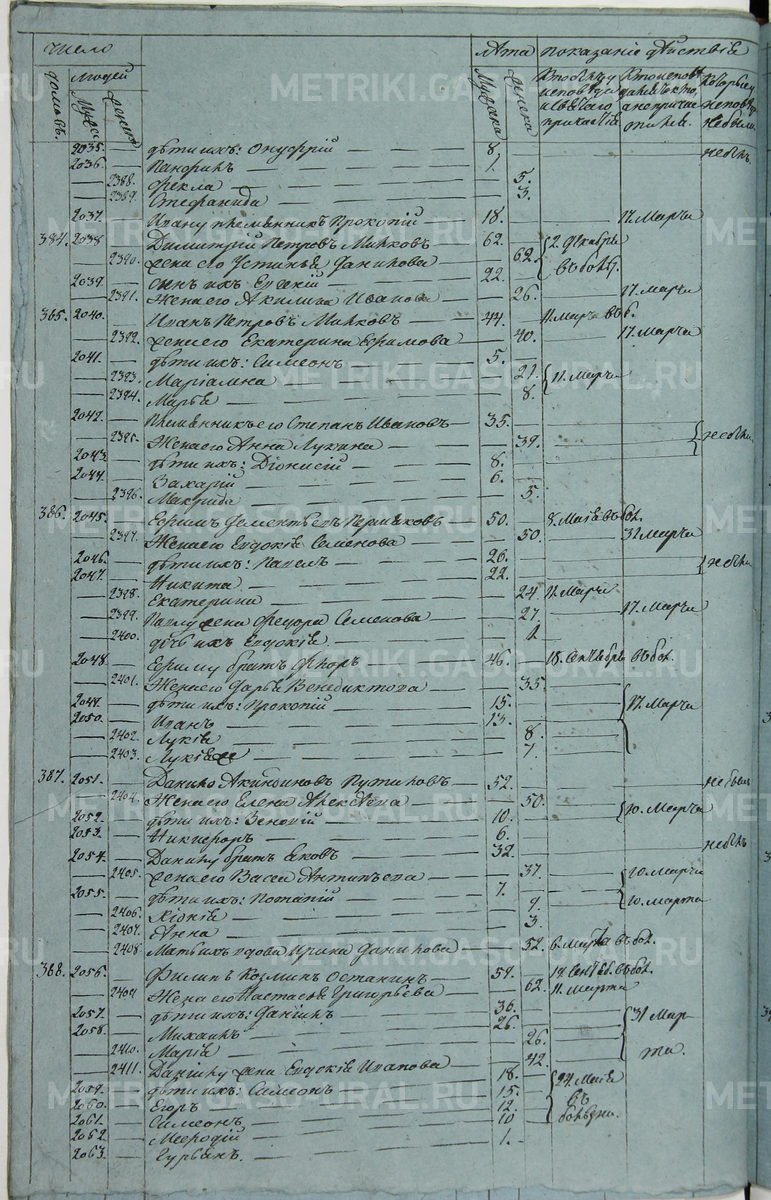 число лѣта показаніе дѣйствія
домовъ. людей Мужска женска Мужска женска
2035. дѣти ихъ: Онуфрій 8. небылъ
2036. Панфилъ 1.
2388. Фекла 5.
2389. Стефанида 3.
2037. Ивану племянникъ Прокопій 18. 17 Марта
384. 2038 Димитрій Петровъ 62. 2. Декабря
2390. жена его Устинья Данилова 62. въ болѣз.
2039. сынъ ихъ Евгеній 22.
2391. Жена его Акилина Иванова 26. 17. Марта
385. 2040. Иванъ Петровъ 44. 11 Марта въ б.
2392. жена его Екатерина Ефимова 40. 17. Марта
2041. дѣти ихъ: Симеонъ 5.
2393. Маріамна 21. 11. Марта
2394. Марья 8.
2042. племянникъ его Степанъ Ивановъ 35.
2395. Жена его Анна Лукина 39. не были
2043. дѣти ихъ: Діонисій 8.
2044. Захарій 6.
2396. Макрида 5.
386. 2045. Ефимъ Дементьевъ Пермяковъ 50. 8. Маія въ бол.
2397. Жена его Евдокія Семенова 50. 31 Марта
2046. дѣти ихъ: Павелъ 26.
2047. Никита 22. не были
2398. Екатерина 24 11 Марта
2399. Павлу жена Федора Семенова 27 17. Марта
2400. дочь ихъ Евдокія 1
2048. Ефиму братъ Флоръ 46. 18. Сентября въ бол.
2401. Жена его Дарья Венедиктова 35.
2049. дѣти ихъ: Прокопій 15. 17. Марта
2050. Иванъ 13.
2402. Лукія 8.
2403. Лукія 7.
387. 2051. Данило Акиндиновъ Путиловъ 52. не былъ
2404. Жена его Елена Алексѣева 50.
2052. дѣти ихъ: Зеновій 10. 10. Марта
2053. Никифоръ 6.
2054. Данилу братъ Яковъ 32. небылъ
2405. жена его Васса Антипьева 37. 10. Марта
2055. дѣти ихъ: Потапій 7.
2406. Ксенія 9. 10. Марта
2407. Анна 3.
2408. Мать ихъ вдова Ирина Данилова 52. 6. Марта въ бол.
388. 2056. Филипъ Козминъ Останинъ 59. 18 Сентяб. въ бол.
2409 Жена его Настасья Григорьева 62. 11. Марта
2057. дѣти ихъ: Даніилъ 36.
2058. Михаилъ 26. 31 Мар
2410. Марія 26. та.
2411. Данилу жена Евдокія Иванова 42.
2059. дѣти ихъ: Симеонъ 18. 24 Маія
2060. Егоръ 15. въ
2061. Симеонъ 12. болѣзни.
2062. Мефодій 10
2063. Гурьянъ. 1.
METRIKI.GASO-URAL.RU